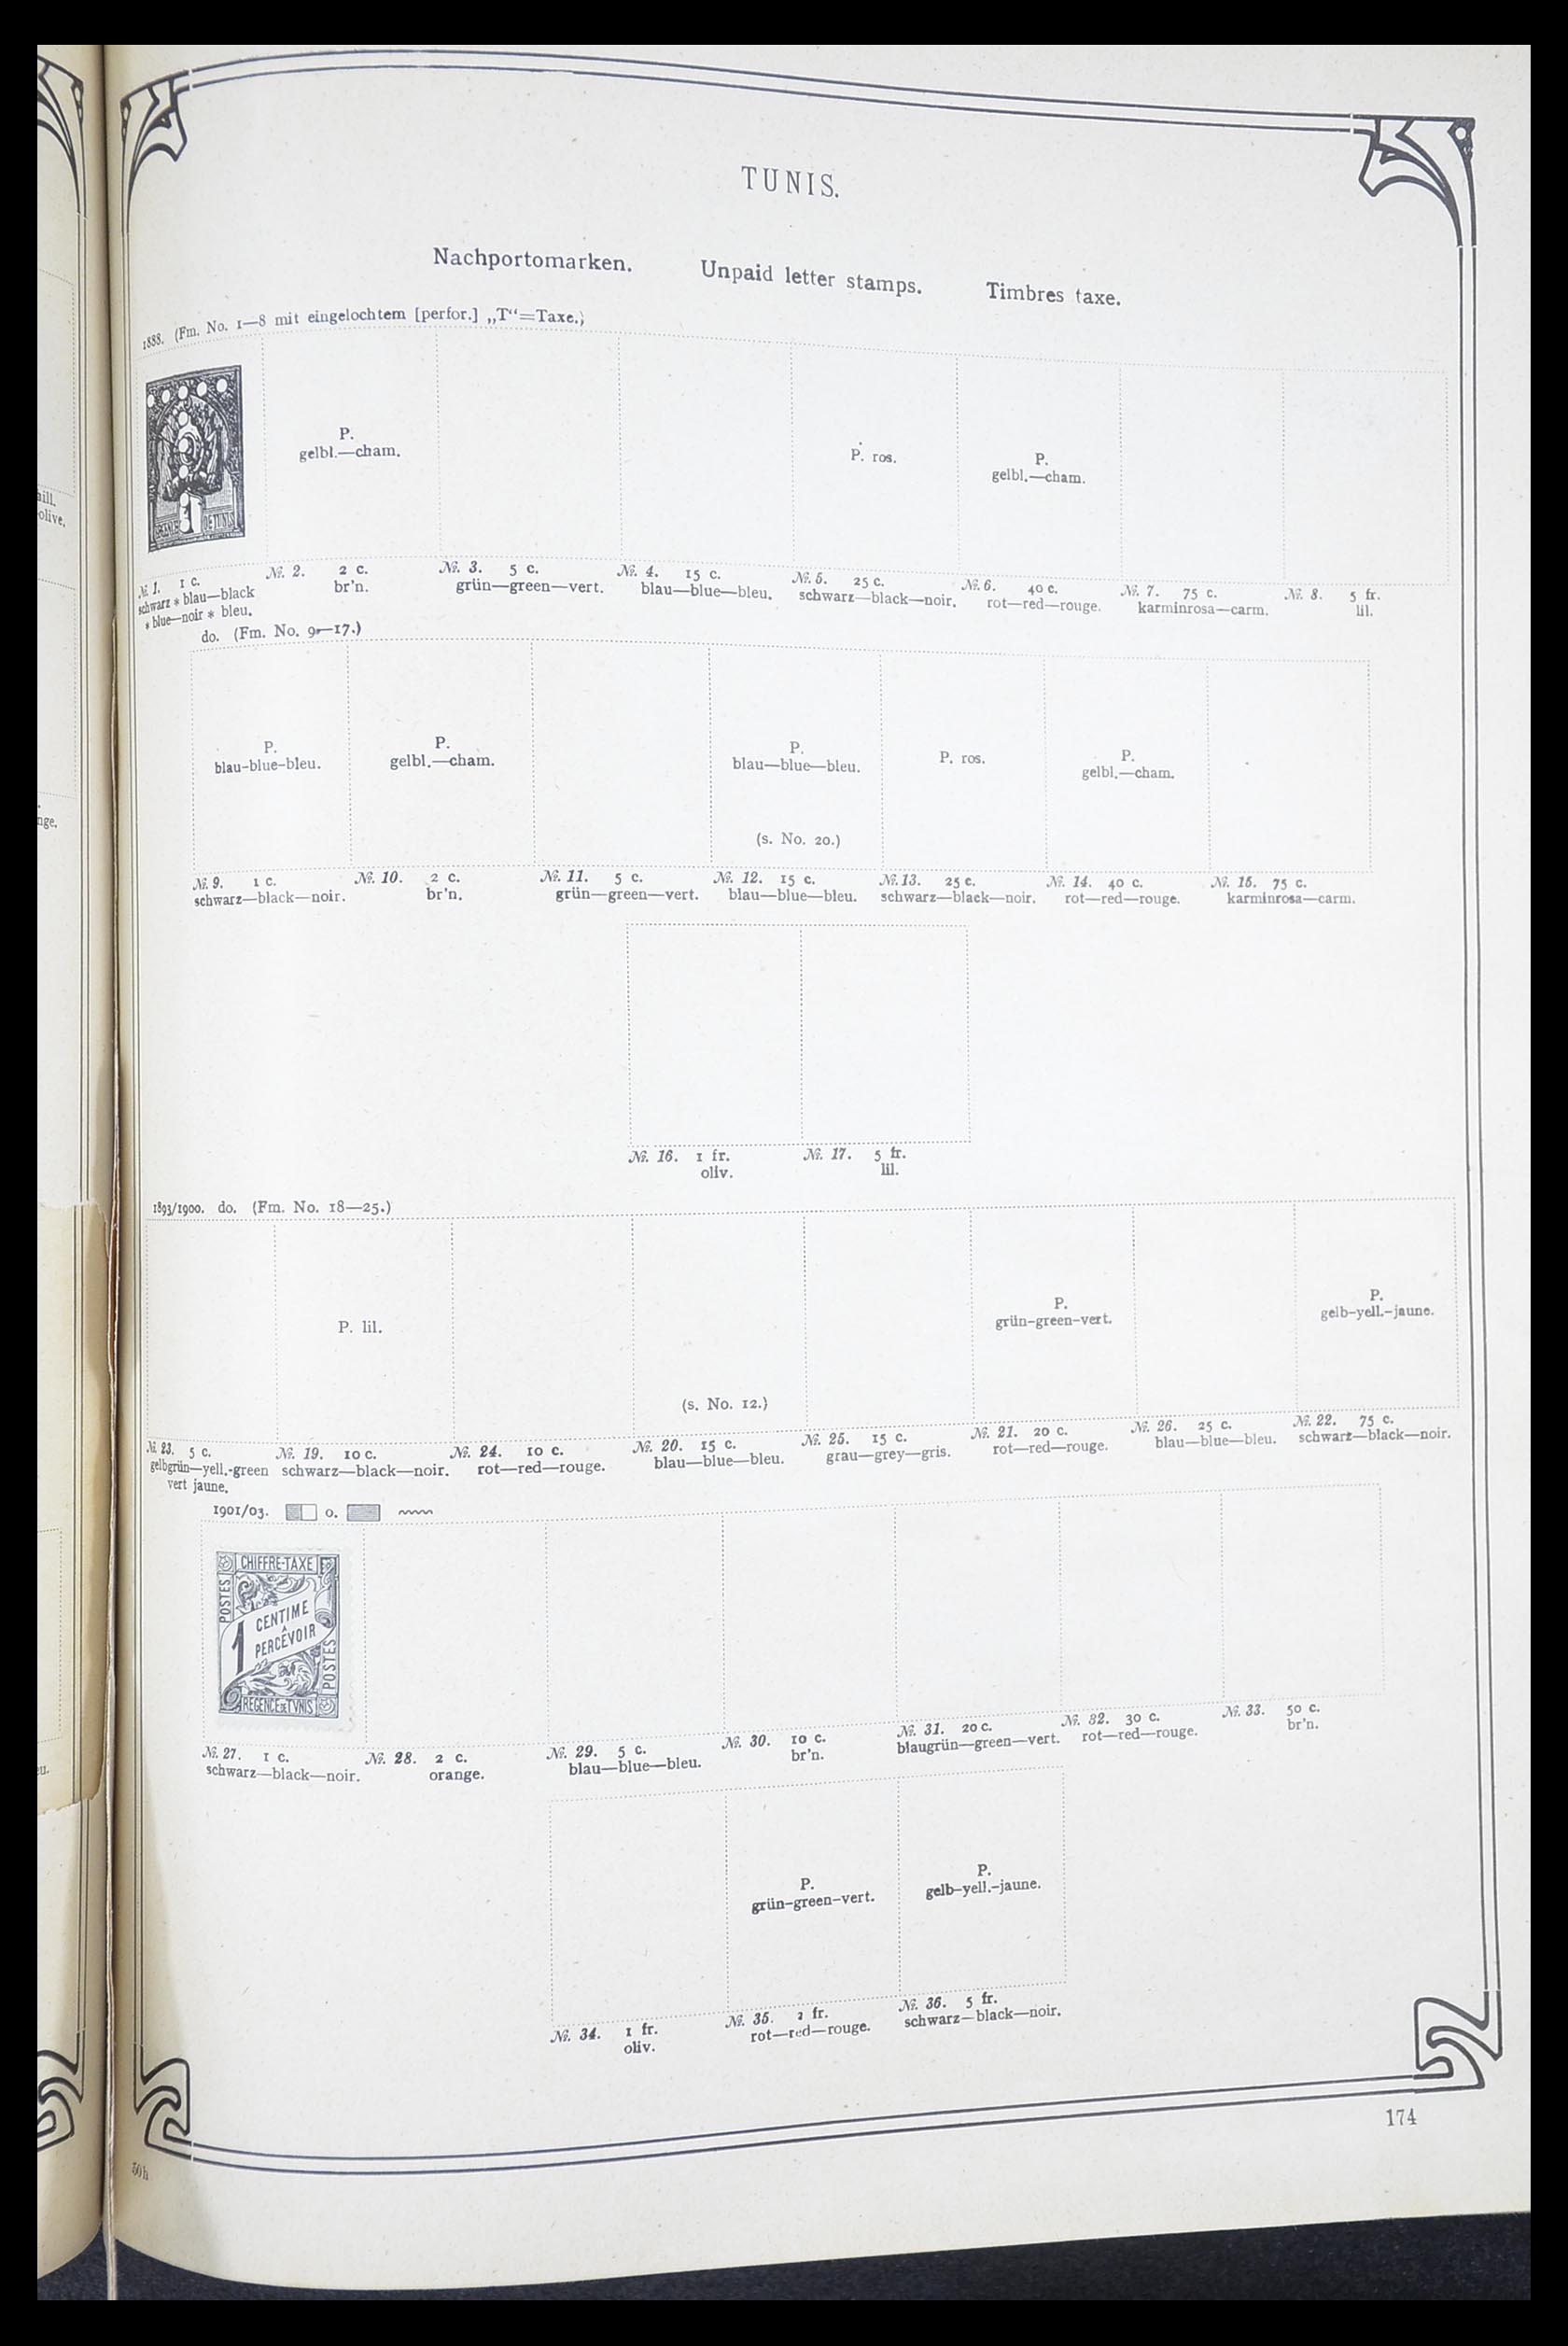 TUNIS.
Nachportomarken. Unpaid letter stamps. Timbres taxe.
1888. (Fm. No. 1—8 mit eingelochtem [perfor.] „T“=Taxe.)
P.
gelbl.—cham.
P. ros.
P.
gelbl.—cham.
№. 1. 1 c.
schwarz * blau—black
* blue—noir * bleu.
№. 2. 2 c.
br'n.
№. 3. 5 c.
grün—green—vert.
№. 4. 15 c.
blau—blue—bleu.
№. 5. 25 c.
schwarz—black—noir.
№. 6. 40 c.
rot—red—rouge.
№. 7. 75 c.
karminrosa—carm.
№. 8. 5 fr.
lil.
do. (Fm. No. 9—17.)
P.
blau-blue-bleu.
P.
gelbl.—cham.
P.
blau—blue—bleu.
(s. No. 20.)
P. ros.
P.
gelbl.—cham.
№. 9. 1 c.
schwarz—black—noir.
№. 10. 2 c.
br'n.
№. 11. 5 c.
grün—green—vert.
№. 12. 15 c.
blau—blue—bleu.
№. 13. 25 c.
schwarz—black—noir.
№. 14. 40 c.
rot—red—rouge.
№. 15. 75 c.
karminrosa—carm.
№. 16. 1 fr.
oliv.
№. 17. 5 fr.
lil.
1893/1900. do. (Fm. No. 18—25.)
P. lil.
(s. No. 12.)
P.
grün-green-vert.
P.
gelb-yell.-jaune.
№. 23. 5 c.
gelbgrün—yell.-green
vert jaune.
№. 19. 10 c.
schwarz—black—noir.
№. 24. 10 c.
rot—red—rouge.
№. 20. 15 c.
blau—blue—bleu.
№. 25. 15 c.
grau—grey—gris.
№. 21. 20 c.
rot—red—rouge.
№. 26. 25 c.
blau—blue—bleu.
№. 22. 75 c.
schwarz—black—noir.
1901/03. o.
CHIFFRE-TAXE
POSTES
1 CENTIME
À
PERCEVOIR
POSTES
REGENCE DE TVNIS
№. 27. 1 c.
schwarz—black—noir.
№. 28. 2 c.
orange.
№. 29. 5 c.
blau—blue—bleu.
№. 30. 10 c.
br'n.
№. 31. 20 c.
blaugrün—green—vert.
№. 32. 30 c.
rot—red—rouge.
№. 33. 50 c.
br'n.
P.
grün-green-vert.
P.
gelb-yell.-jaune.
№. 34. 1 fr.
oliv.
№. 35. 2 fr.
rot—red—rouge.
№. 36. 5 fr.
schwarz—black—noir.
174